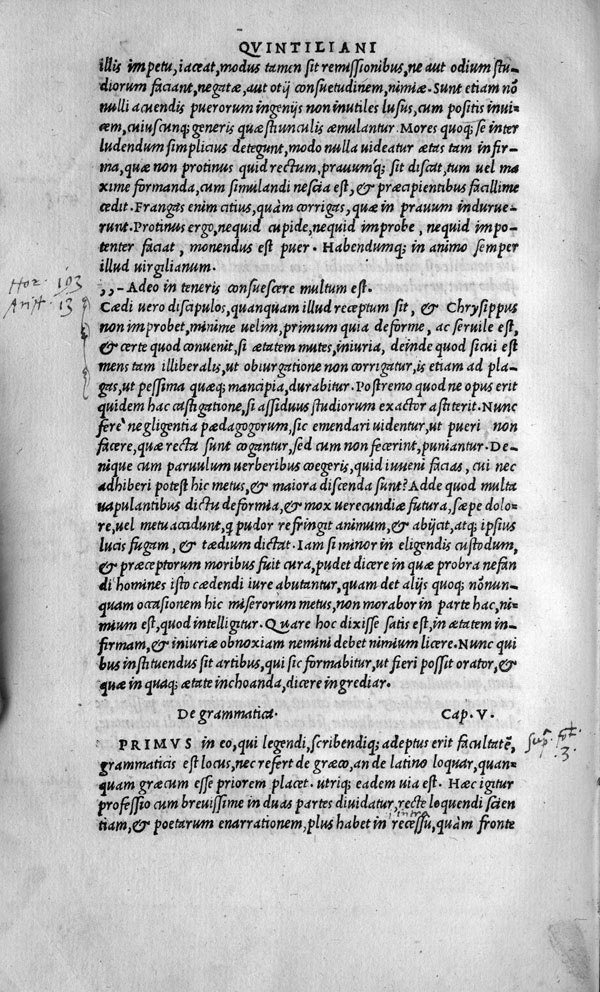 QVINTILIANI
illis impetu, iaceat, modus tamen sit remissionibus, ne aut odium stu-
diorum faciant, negatæ, aut otij consuetudinem, nimiæ. Sunt etiam nõ
nulli acuendis puerorum ingenijs non inutiles lusus, cum positis inui-
cem, cuiuscunq; generis quæstiunculis æmulantur. Mores quoq; se inter
ludendum simplicius detegunt, modo nulla uideatur ætas tam infir-
ma, quæ non protinus quid rectum, prauumq́; sit discat, tum uel ma
xime formanda, cum simulandi nescia est, & præcipientibus facillime
cedit. Frangas enim citius, quàm corrigas, quæ in prauum indurue-
runt. Protinus ergo, nequid cupide, nequid improbe, nequid impo-
tenter faciat, monendus est puer. Habendumq; in animo semper
illud uirgilianum.
,,-Adeo in teneris consuescere multum est.
Hor. 103
Arist. 13
Cædi uero discipulos, quanquam illud receptum sit, & Chrysippus
non improbet, minime uelim, primum quia deforme, ac seruile est,
& certe quod conuenit, si ætatem mutes, iniuria, deinde quod sicui est
mens tam illiberalis, ut obiurgatione non corrigatur, is etiam ad pla-
gas, ut pessima quæq; mancipia, durabitur. Postremo quod ne opus erit
quidem hac castigatione, si assiduus studiorum exactor astiterit. Nunc
ferè negligentia pædagogorum, sic emendari uidentur, ut pueri non
facere, quæ recta sunt cogantur, sed cum non fecerint, puniantur. De-
nique cum paruulum uerberibus coegeris, quid iuueni facias, cui nec
adhiberi potest hic metus, & maiora discenda sunt? Adde quod multa
uapulantibus dictu deformia, & mox uerecundiæ futura, sæpe dolo-
re, uel metu accidunt, q pudor refringit animum, & abijcit, atq; ipsius
lucis fugam, & tædium dictat. Iam si minor in eligendis custodum,
& præceptorum moribus fuit cura, pudet dicere in quæ probra nefan
di homines isto cædendi iure abutantur, quam det alijs quoq; nõnun-
quam occasionem hic miserorum metus, non morabor in parte hac, ni-
mium est, quod intelligitur. Quare hoc dixisse satis est, in ætatem in-
firmam, & iniuriæ obnoxiam nemini debet nimium licere. Nunc qui
bus instituendus sit artibus, qui sic formabitur, ut fieri possit orator, &
quæ in quaq; ætate inchoanda, dicere ingrediar.
De grammatica. Cap. V.
PRIMVS in eo, qui legendi, scribendiq; adeptus erit facultatẽ,
grammaticis est locus, nec refert de græco, an de latino loquar, quan-
quam græcum esse priorem placet. utriq; eadem uia est. Hæc igitur
professio cum breuissime in duas partes diuidatur, recte loquendi scien
tiam, & poetarum enarrationem, plus habet in recessu, quàm fronte